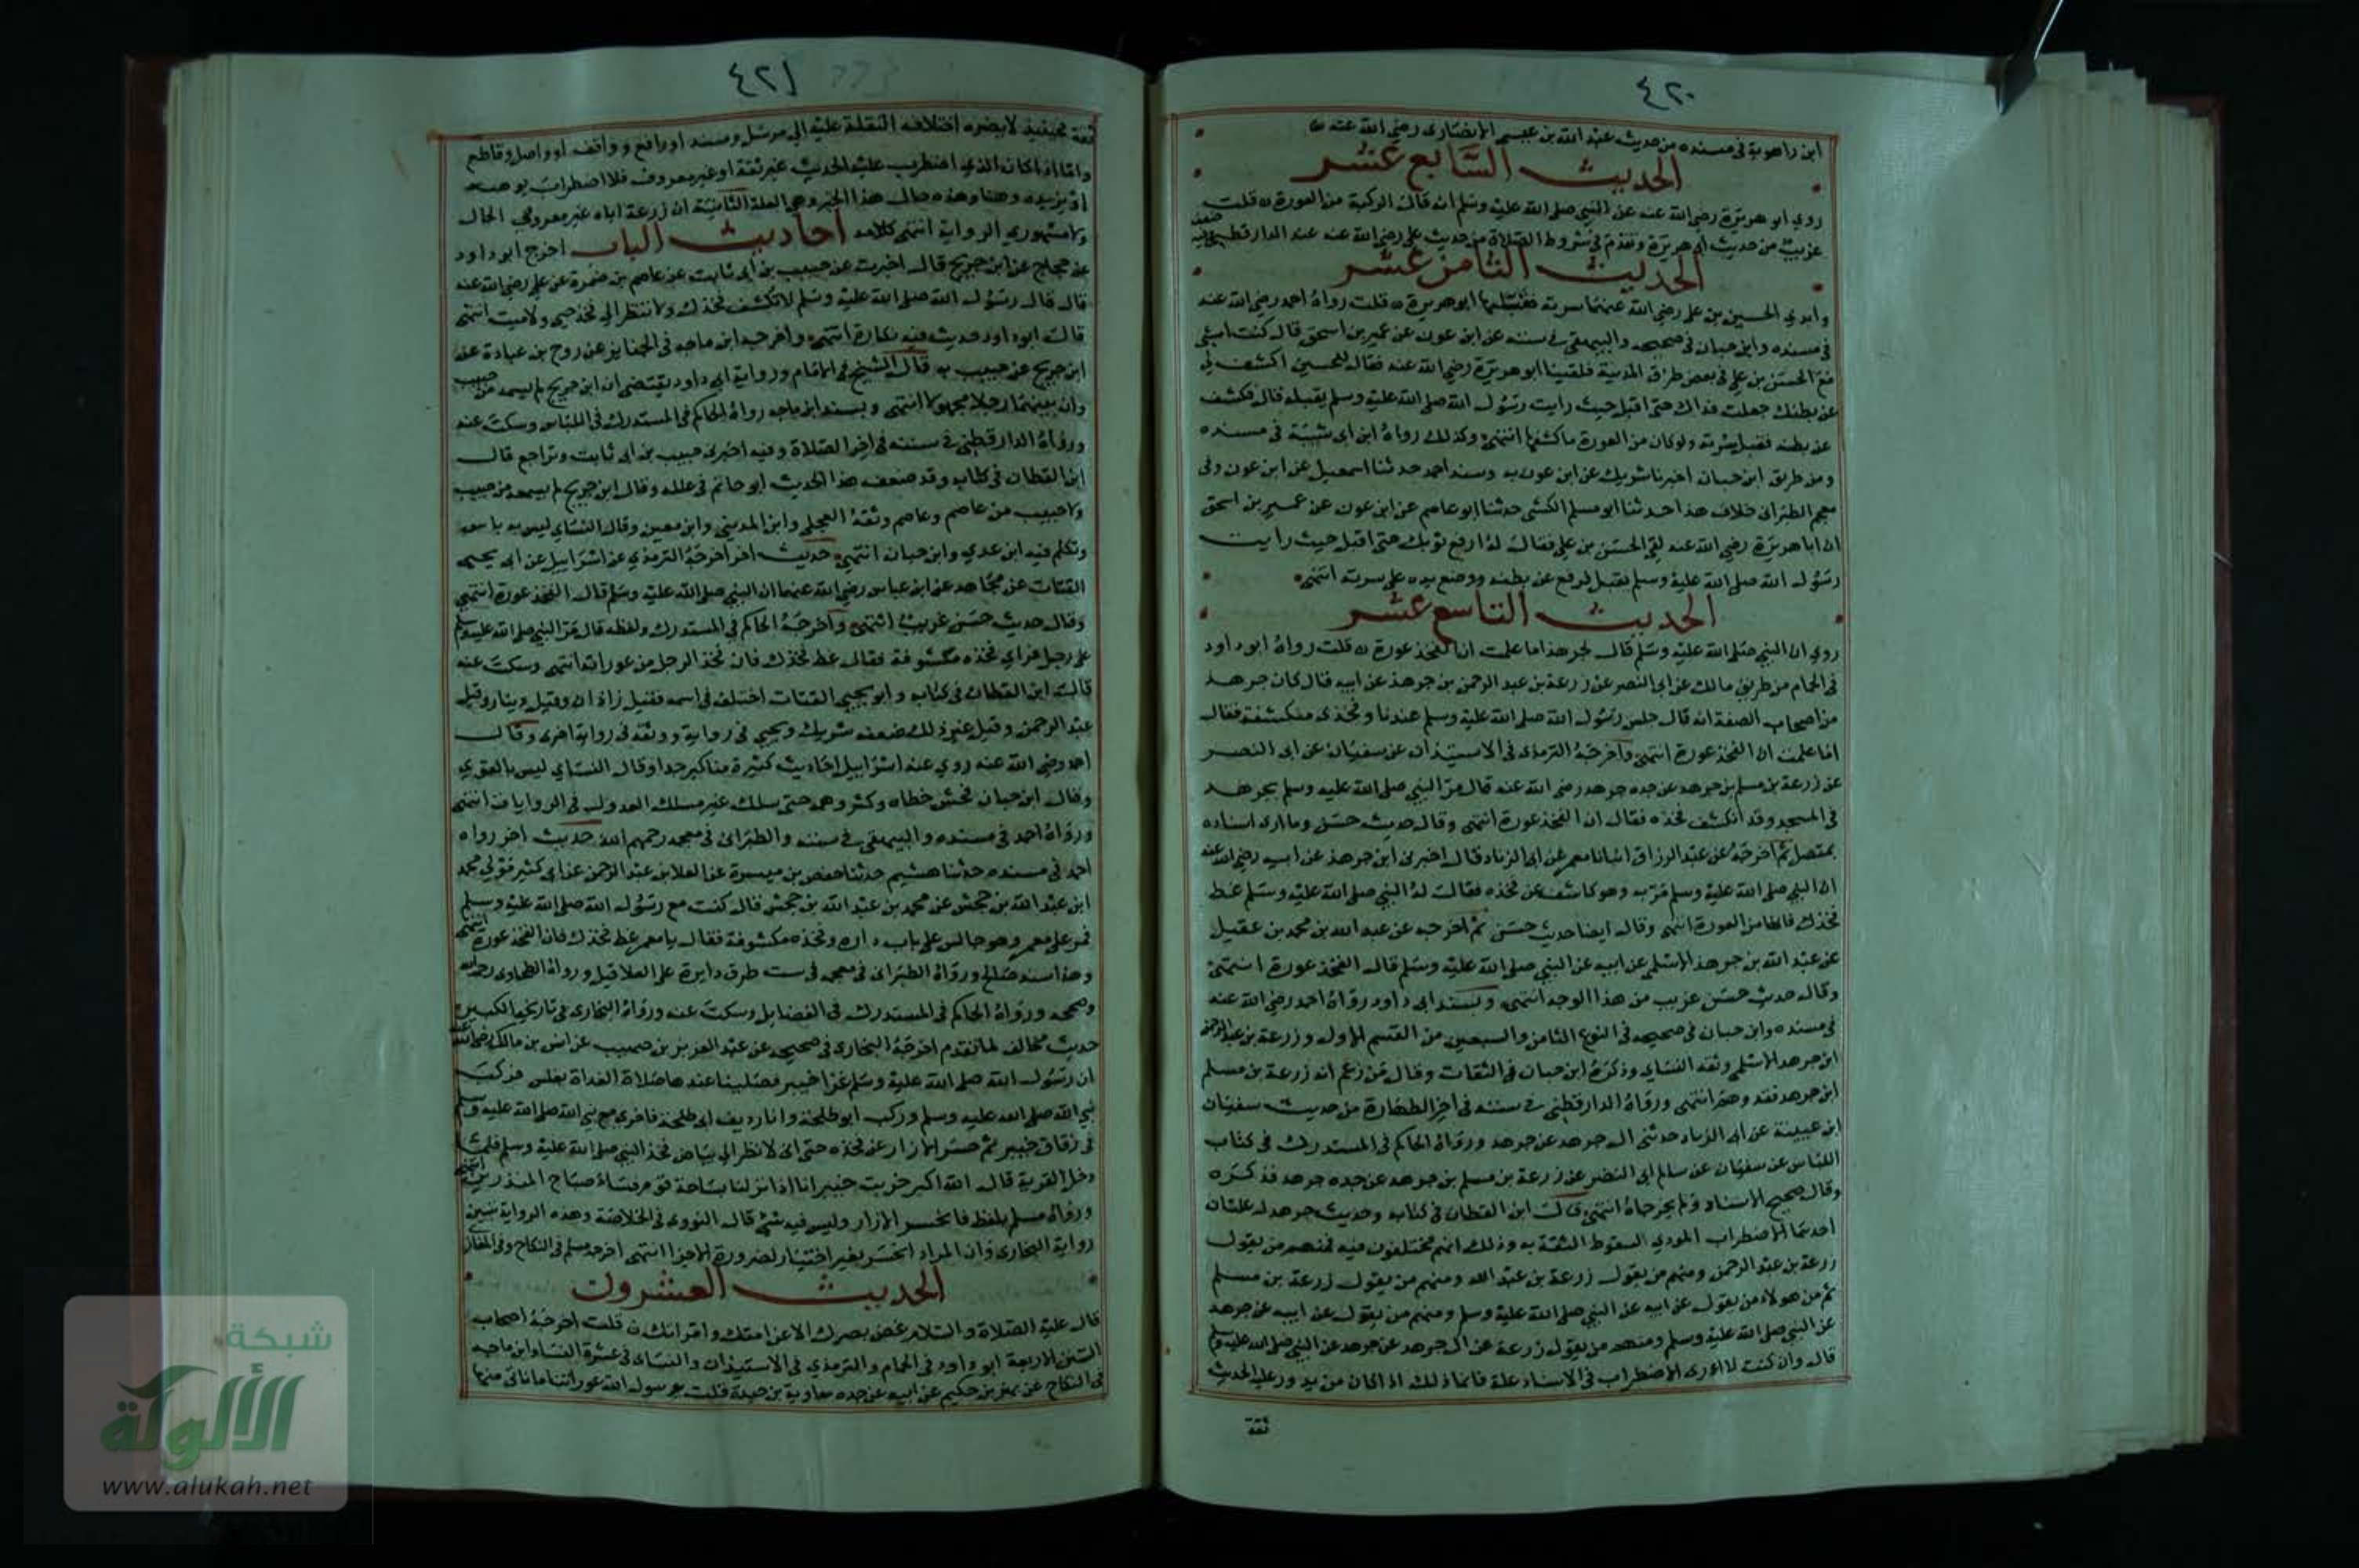 ٤٢٠
ابن راهوية في مسنده من حديث عبد الله بن عبيس الانصاري رضي الله عنه
الحديث السابع عشر
روي ابو هريرة رضي الله عنه عن النبي صلى الله عليه وسلم انه قال الركبة من العورة قلت
غريب من حديث ابي هريرة وتقدم في شروط الصلاة من حديث علي رضي الله عنه عند الدارقطني
الحديث الثامن عشر
وابدي الحسين بن علي رضي الله عنهما سرته فقبلها ابو هريرة قلت رواه احمد رضي الله عنه
في مسنده وابن حبان في صحيحه والبيهقي في سننه عن ابن عون عن عمير بن اسحق قال كنت امشي
مع الحسن بن علي في بعض طرق المدينة فلقينا ابو هريرة رضي الله عنه فقال للحسين اكشف لي
عن بطنك جعلت فداك حتى اقبل حيث رايت رسول الله صلى الله عليه وسلم يقبله قال فكشف
عن بطنه فقبل سرته ولو كان من العورة ما كشفها انتهى وكذلك رواه ابن ابي شيبة في مسنده
ومن طريق ابن حبان اخبرنا شريك عن ابن عون به وسند احمد حدثنا اسمعيل عن ابن عون وفي
معجم الطبراني خلاف هذا حدثنا ابو مسلم الكشي حدثنا ابو عاصم عن ابن عون عن عمير بن اسحق
ان ابا هريرة رضي الله عنه لقي الحسن بن علي فقال له ارفع ثوبك حتى اقبل حيث رايت
رسول الله صلى الله عليه وسلم يقبل فرفع عن بطنه ووضع يده على سرته انتهى
الحديث التاسع عشر
روي ان النبي صلى الله عليه وسلم قال لجرهد اما علمت ان الفخذ عورة قلت رواه ابو داود
في الحمام من طريق مالك عن ابي النضر عن زرعة بن عبد الرحمن بن جرهد عن ابيه قال كان جرهد
من اصحاب الصفة انه قال جلس رسول الله صلى الله عليه وسلم عندنا وفخذي منكشفة فقال
اما علمت ان الفخذ عورة انتهى واخرجه الترمذي في الاستيذان عن سفيان عن ابي النضر
عن زرعة بن مسلم بن جرهد عن جده جرهد رضي الله عنه قال مر النبي صلى الله عليه وسلم بجرهد
في المسجد وقد انكشف فخذه فقال ان الفخذ عورة انتهى وقال حديث حسن وما ارى اسناده
بمتصل ثم اخرجه عن عبد الرزاق انبانا معمر عن ابي الزناد قال اخبرني ابن جرهد عن ابيه رضي الله عنه
ان النبي صلى الله عليه وسلم مر به وهو كاشف عن فخذه فقال له النبي صلى الله عليه وسلم غط
فخذك فانها من العورة انتهى وقال ايضا حديث حسن ثم اخرجه عن عبد الله بن محمد بن عقيل
عن عبد الله بن جرهد الاسلمي عن ابيه عن النبي صلى الله عليه وسلم قال الفخذ عورة انتهى
وقال حديث حسن غريب من هذا الوجه انتهى وبسند ابي داود رواه احمد رضي الله عنه
في مسنده وابن حبان في صحيحه في النوع الثامن والسبعين من القسم الاول وزرعة بن عبد الرحمن
ابن جرهد الاسلمي وثقه النساي وذكره ابن حبان في الثقات وقال من زعم انه زرعة بن مسلم
ابن جرهد فقد وهم انتهى ورواه الدارقطني في سننه في اخر الطهارة من حديث سفيان
ابن عيينة عن ابي الزناد حدثني ال جرهد عن جرهد ورواه الحاكم في المستدرك في كتاب
اللباس عن سفيان عن سالم ابي النضر عن زرعة بن مسلم بن جرهد عن جده جرهد فذكره
وقال صحيح الاسناد ولم يخرجاه انتهى قال ابن القطان في كتابه وحديث جرهد له علتان
احدهما الاضطراب المودي لسقوط الثقة به وذلك انهم مختلفون فيه فمنهم من يقول
زرعة بن عبد الرحمن ومنهم من يقول زرعة بن عبد الله ومنهم من يقول زرعة بن مسلم
ثم من هولاء من يقول عن ابيه عن النبي صلى الله عليه وسلم ومنهم من يقول عن ابيه عن جرهد
عن النبي صلى الله عليه وسلم ومنهم من يقول زرعة عن ال جرهد عن جرهد عن النبي صلى الله عليه وسلم
قال وان كنت لا ارى الاضطراب في الاسناد علة فانما ذلك اذا كان من يدور عليه الحديث
ثقة
٤٢١
ثقة فحينيذ لا يضره اختلاف النقلة عليه الى مرسل ومسند او رافع وواقف او واصل وقاطع
واما اذا كان الذي اضطرب عليه الحديث غير ثقة او غير معروف فلاضطراب يوهنه
او يزيده وهنا وهذه حال هذا الخبر وهي العلة الثانية ان زرعة اباه غير معروفي الحال
ولا مشهوري الرواية انتهى كلامه احاديث الباب اخرج ابو داود
عن حجاج عن ابن جريج قال اخبرت عن حبيب بن ابي ثابت عن عاصم بن ضمرة عن علي رضي الله عنه
قال قال رسول الله صلى الله عليه وسلم لا تكشف فخذك ولا تنظر الى فخذ حي ولا ميت انتهى
قال ابو داود حديث فيه نكارة انتهى واخرجه ابن ماجه في الجنايز عن روح بن عبادة عن
ابن جريج عن حبيب به قال الشيخ في الامام ورواية ابي داود يقتضي ان ابن جريج لم يسمعه من حبيب
وان بينهما رجلا مجهولا انتهى وبسند ابن ماجه رواه الحاكم في المستدرك في اللباس وسكت عنه
ورواه الدارقطني في سننه في اخر الصلاة وفيه اخبرني حبيب بن ابي ثابت وتراجع قال
ابن القطان في كتابه وقد ضعف هذا الحديث ابو حاتم في علله وقال ابن جريج لم يسمعه من حبيب
ولا حبيب من عاصم وعاصم وثقه العجلي وابن المديني وابن معين وقال النساي ليس به باس
وتكلم فيه ابن عدي وابن حبان انتهى حديث اخر اخرجه الترمذي عن اسرايل عن ابي يحيى
القتات عن مجاهد عن ابن عباس رضي الله عنهما ان النبي صلى الله عليه وسلم قال الفخذ عورة انتهى
وقال حديث حسن غريب انتهى واخرجه الحاكم في المستدرك ولفظه قال مر النبي صلى الله عليه وسلم
على رجل فراي فخذه مكشوفة فقال غط فخذك فان فخذ الرجل من عوراته انتهى وسكت عنه
قال ابن القطان في كتابه وابو يحيى القتات اختلف في اسمه فقيل زاذان وقيل دينار وقيل
عبد الرحمن وقيل غير ذلك ضعفه شريك ويحيى في رواية ووثقه في رواية اخرى وقال
احمد رضي الله عنه روي عنه اسرايل احاديث كثيرة مناكير جدا وقال النساي ليس بالقوي
وقال ابن حبان فحش خطاه وكثر وهمه حتى سلك غير مسلك العدول في الروايات انتهى
ورواه احمد في مسنده والبيهقي في سننه والطبراني في معجمه رحمهم الله حديث اخر رواه
احمد في مسنده حدثنا هشيم حدثنا حفص بن ميسرة عن العلا بن عبد الرحمن عن ابي كثير مولي محمد
ابن عبد الله بن جحش عن محمد بن عبد الله بن جحش قال كنت مع رسول الله صلى الله عليه وسلم
فمر على معمر وهو جالس على باب داره وفخذه مكشوفة فقال يا معمر غط فخذك فان الفخذ عورة انتهى
وهذا سند صالح ورواه الطبراني في معجمه في ست طرق دايرة على العلا قيل ورواه الطحاوي رحمه الله
وصححه ورواه الحاكم في المستدرك في الفضايل وسكت عنه ورواه البخاري في تاريخه الكبير
حديث مخالف لما تقدم اخرجه البخاري في صحيحه عن عبد العزيز بن صهيب عن انس بن مالك رضي الله عنه
ان رسول الله صلى الله عليه وسلم غزا خيبر فصلينا عندها صلاة الغداة بغلس فركب
نبي الله صلى الله عليه وسلم وركب ابو طلحة وانا رديف ابي طلحة فاجرى نبي الله صلى الله عليه وسلم
في زقاق خيبر ثم حسر الازار عن فخذه حتى اني لانظر الى بياض فخذ النبي صلى الله عليه وسلم فلما
دخل القرية قال الله اكبر خربت خيبر انا اذا نزلنا بساحة قوم فساء صباح المنذرين انتهى
ورواه مسلم بلفظ فانحسر الازار وليس فيه شي قال النووي في الخلاصة وهذه الرواية تبين
رواية البخاري وان المراد انحسر بغير اختيار لضرورة الاجرا انتهى اخرجه مسلم في النكاح وفي المغازي
الحديث العشرون
قال عليه الصلاة والسلام غض بصرك الا عن امتك وامراتك قلت اخرجه اصحاب
السنن الاربعة ابو داود في الحمام والترمذي في الاستيذان والنساي في عشرة النساء وابن ماجه
في النكاح عن بهز بن حكيم عن ابيه عن جده معاوية بن حيدة قلت يا رسول الله عوراتنا ما ناتي منها
شبكة
الألوكة
www.alukah.net